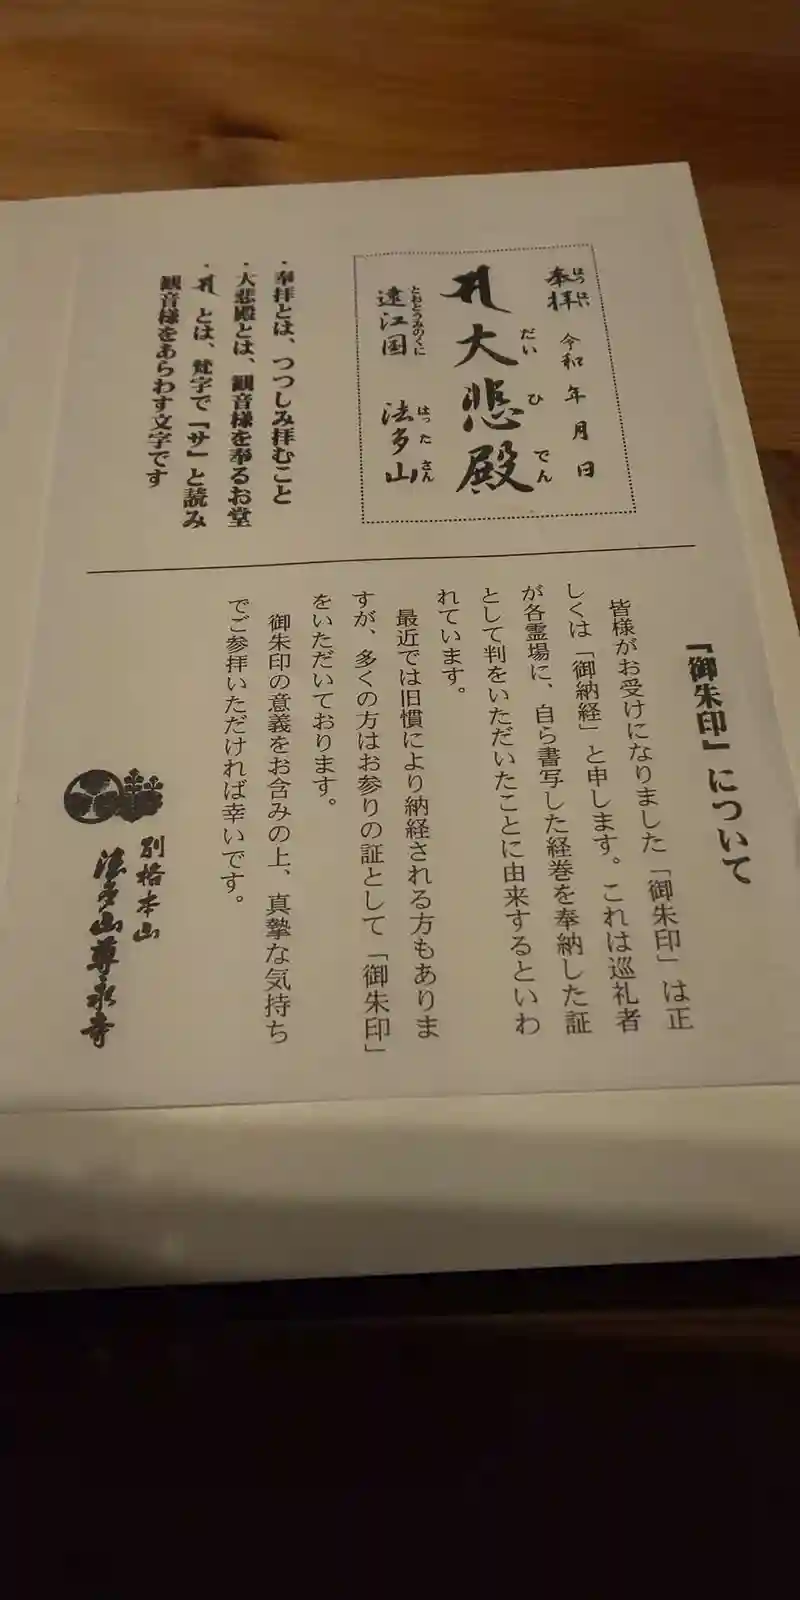 奉拝 令和 年 月 日
はつはい
大悲殿
だいひでん
遠江国 法多山
とおとうみのくに はったさん
・奉拝とは、つつしみ拝むこと
・大悲殿とは、観音様を奉るお堂
・ とは、梵字で「サ」と読み
観音様をあらわす文字です
『御朱印』について
皆様がお受けになりました「御朱印」は正
しくは「御納経」と申します。これは巡礼者
が各霊場に、自ら書写した経巻を奉納した証
として判をいただいたことに由来するといわ
れています。
最近では旧慣により納経される方もありま
すが、多くの方はお参りの証として「御朱印」
をいただいております。
御朱印の意義をお含みの上、真摯な気持ち
でご参拝いただければ幸いです。
別格本山
法多山尊永寺